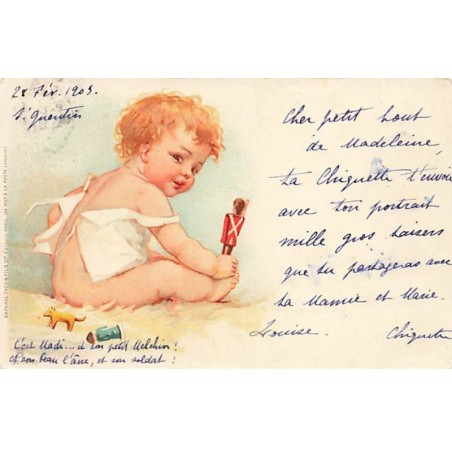 28 Fév. 1905.
St Quentin
Cher petit bout
de Madeleine,
ta Chiquette t'envoie
avec ton portrait
mille gros baisers
que tu partageras avec
ta Mamie et Marie.
Louise. Chiquette
C'est Madi... et son petit Melchior!
et son beau l'âne, et son soldat!